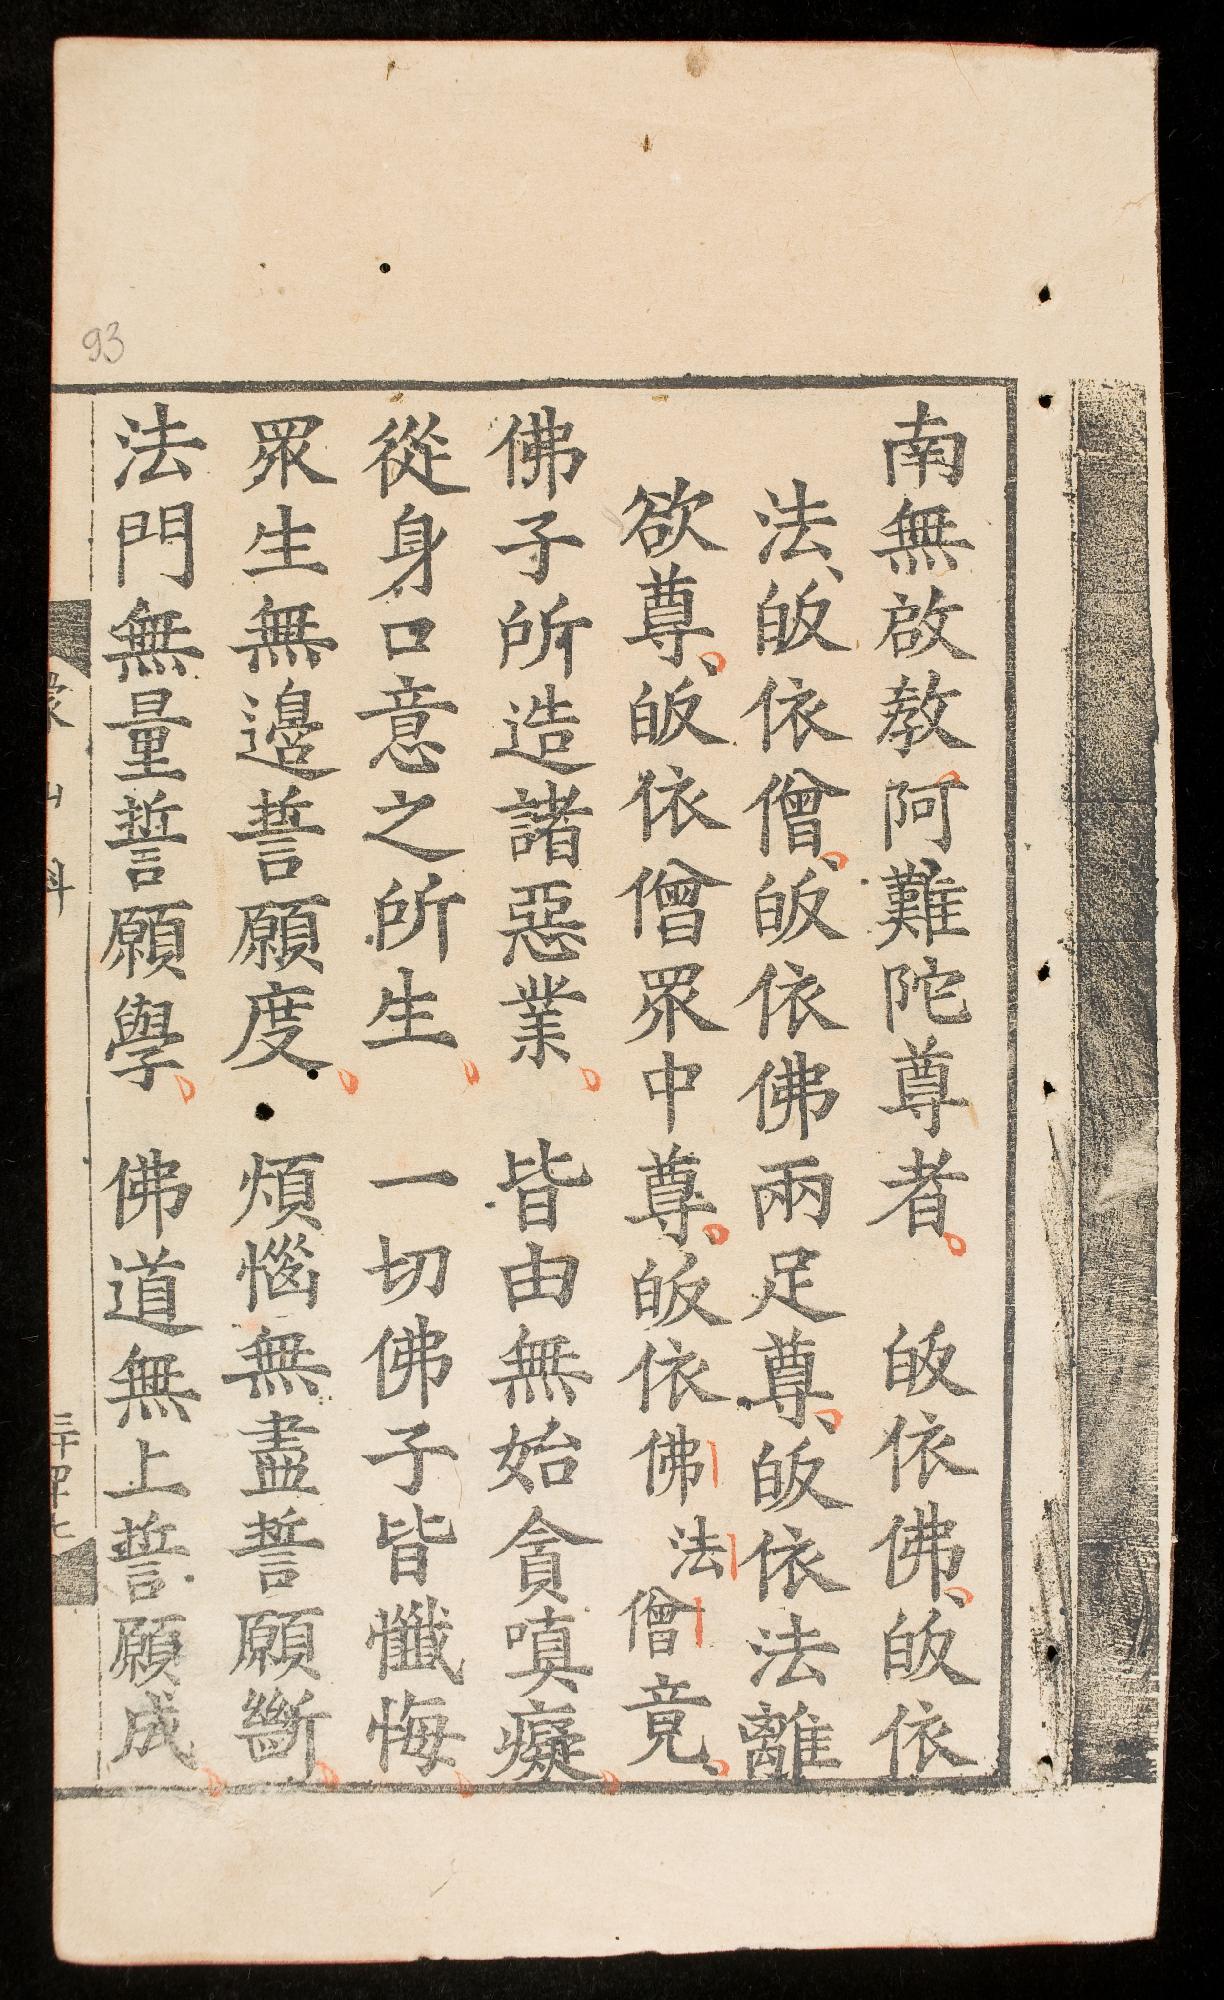 南無啟教阿難陀尊者。 皈依佛、皈依
法、皈依僧、皈依佛兩足尊、皈依法離
欲尊、皈依僧眾中尊、皈依佛法僧竟、
佛子所造諸惡業、 皆由無始貪嗔癡、
從身口意之所生、 一切佛子皆懺悔、
眾生無邊誓願度、 煩惱無盡誓願斷、
法門無量誓願學、 佛道無上誓願成、
93